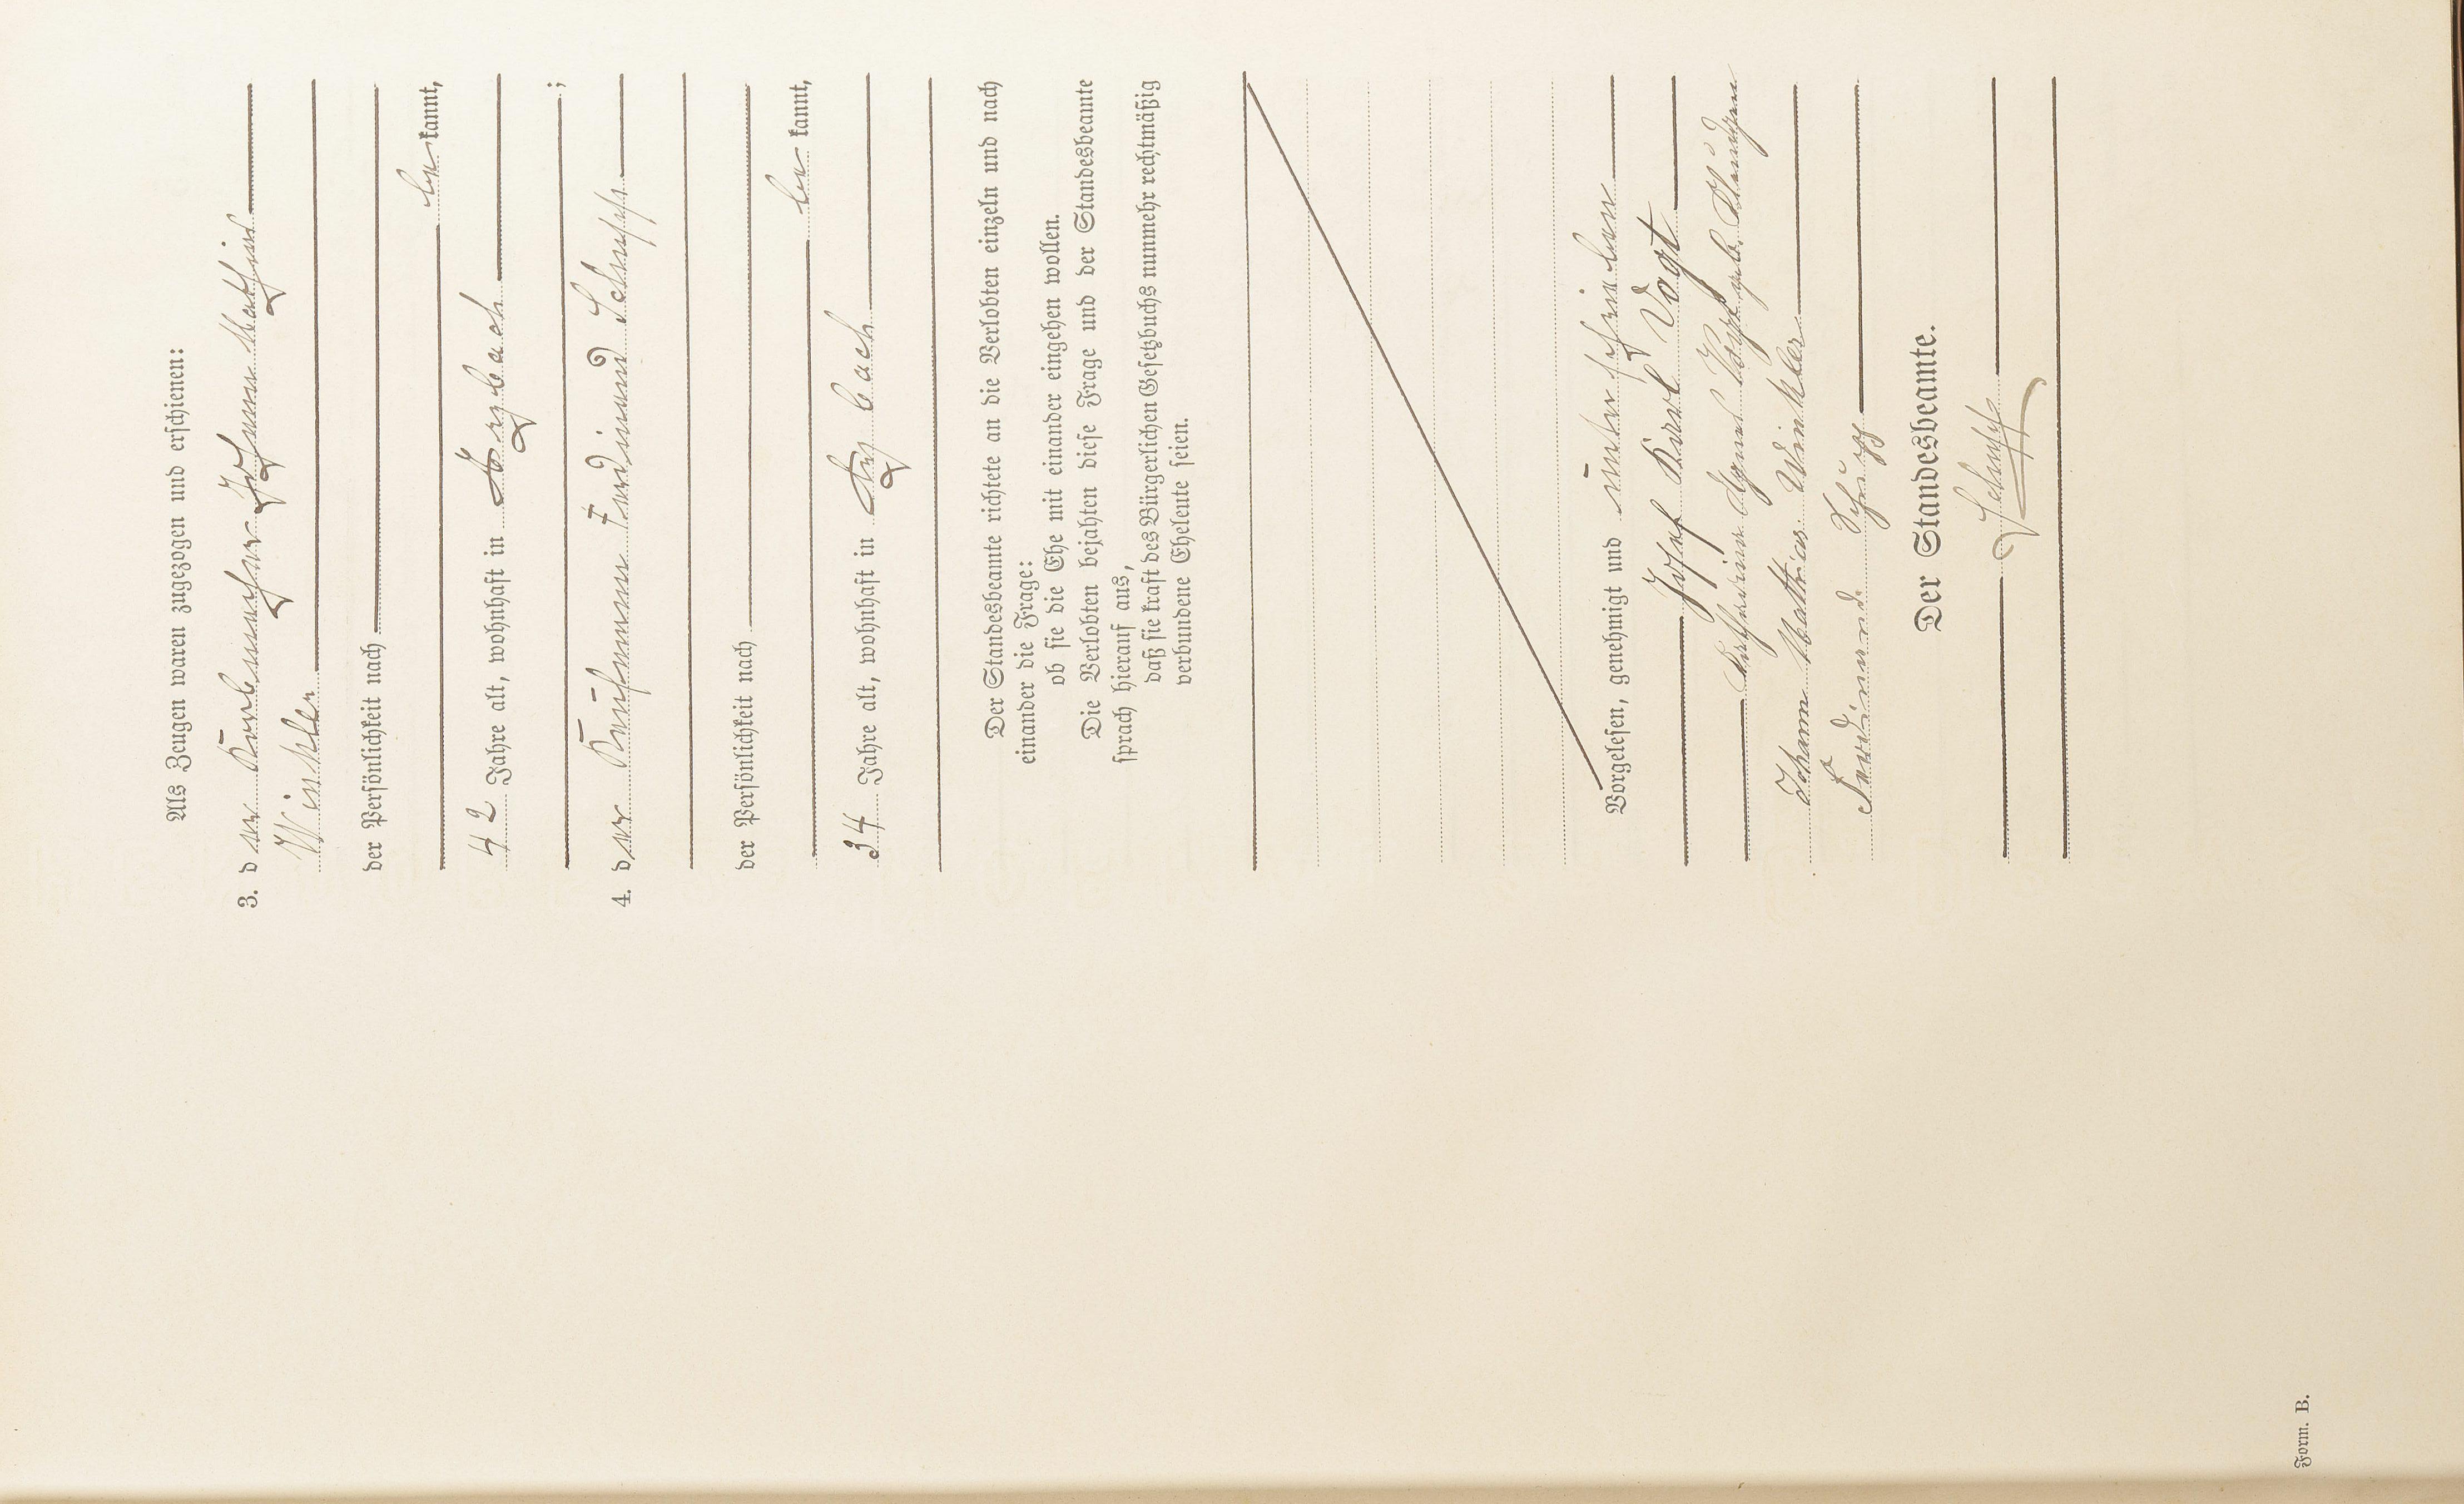 Als Zeugen waren zugezogen und erschienen:
3. der Korbmacher Johann Mathias
Winkler
der Persönlichkeit nach
be kannt,
42 Jahre alt, wohnhaft in
;
4. der Kaufmann Ferdinand Schupp
der Persönlichkeit nach
be kannt,
34 Jahre alt, wohnhaft in
Der Standesbeamte richtete an die Verlobten einzeln und nach
einander die Frage:
ob sie die Ehe mit einander eingehen wollen.
Die Verlobten bejahten diese Frage und der Standesbeamte
sprach hierauf aus,
daß sie kraft des Bürgerlichen Gesetzbuchs nunmehr rechtmäßig
verbundene Eheleute seien.
Vorgelesen, genehmigt und unterschrieben
Josef Karl Vogt
Agnes Vogt geb.
Johann Mathias Winkler
Ferdinand Schupp
Der Standesbeamte.
Schupp
Form. B.